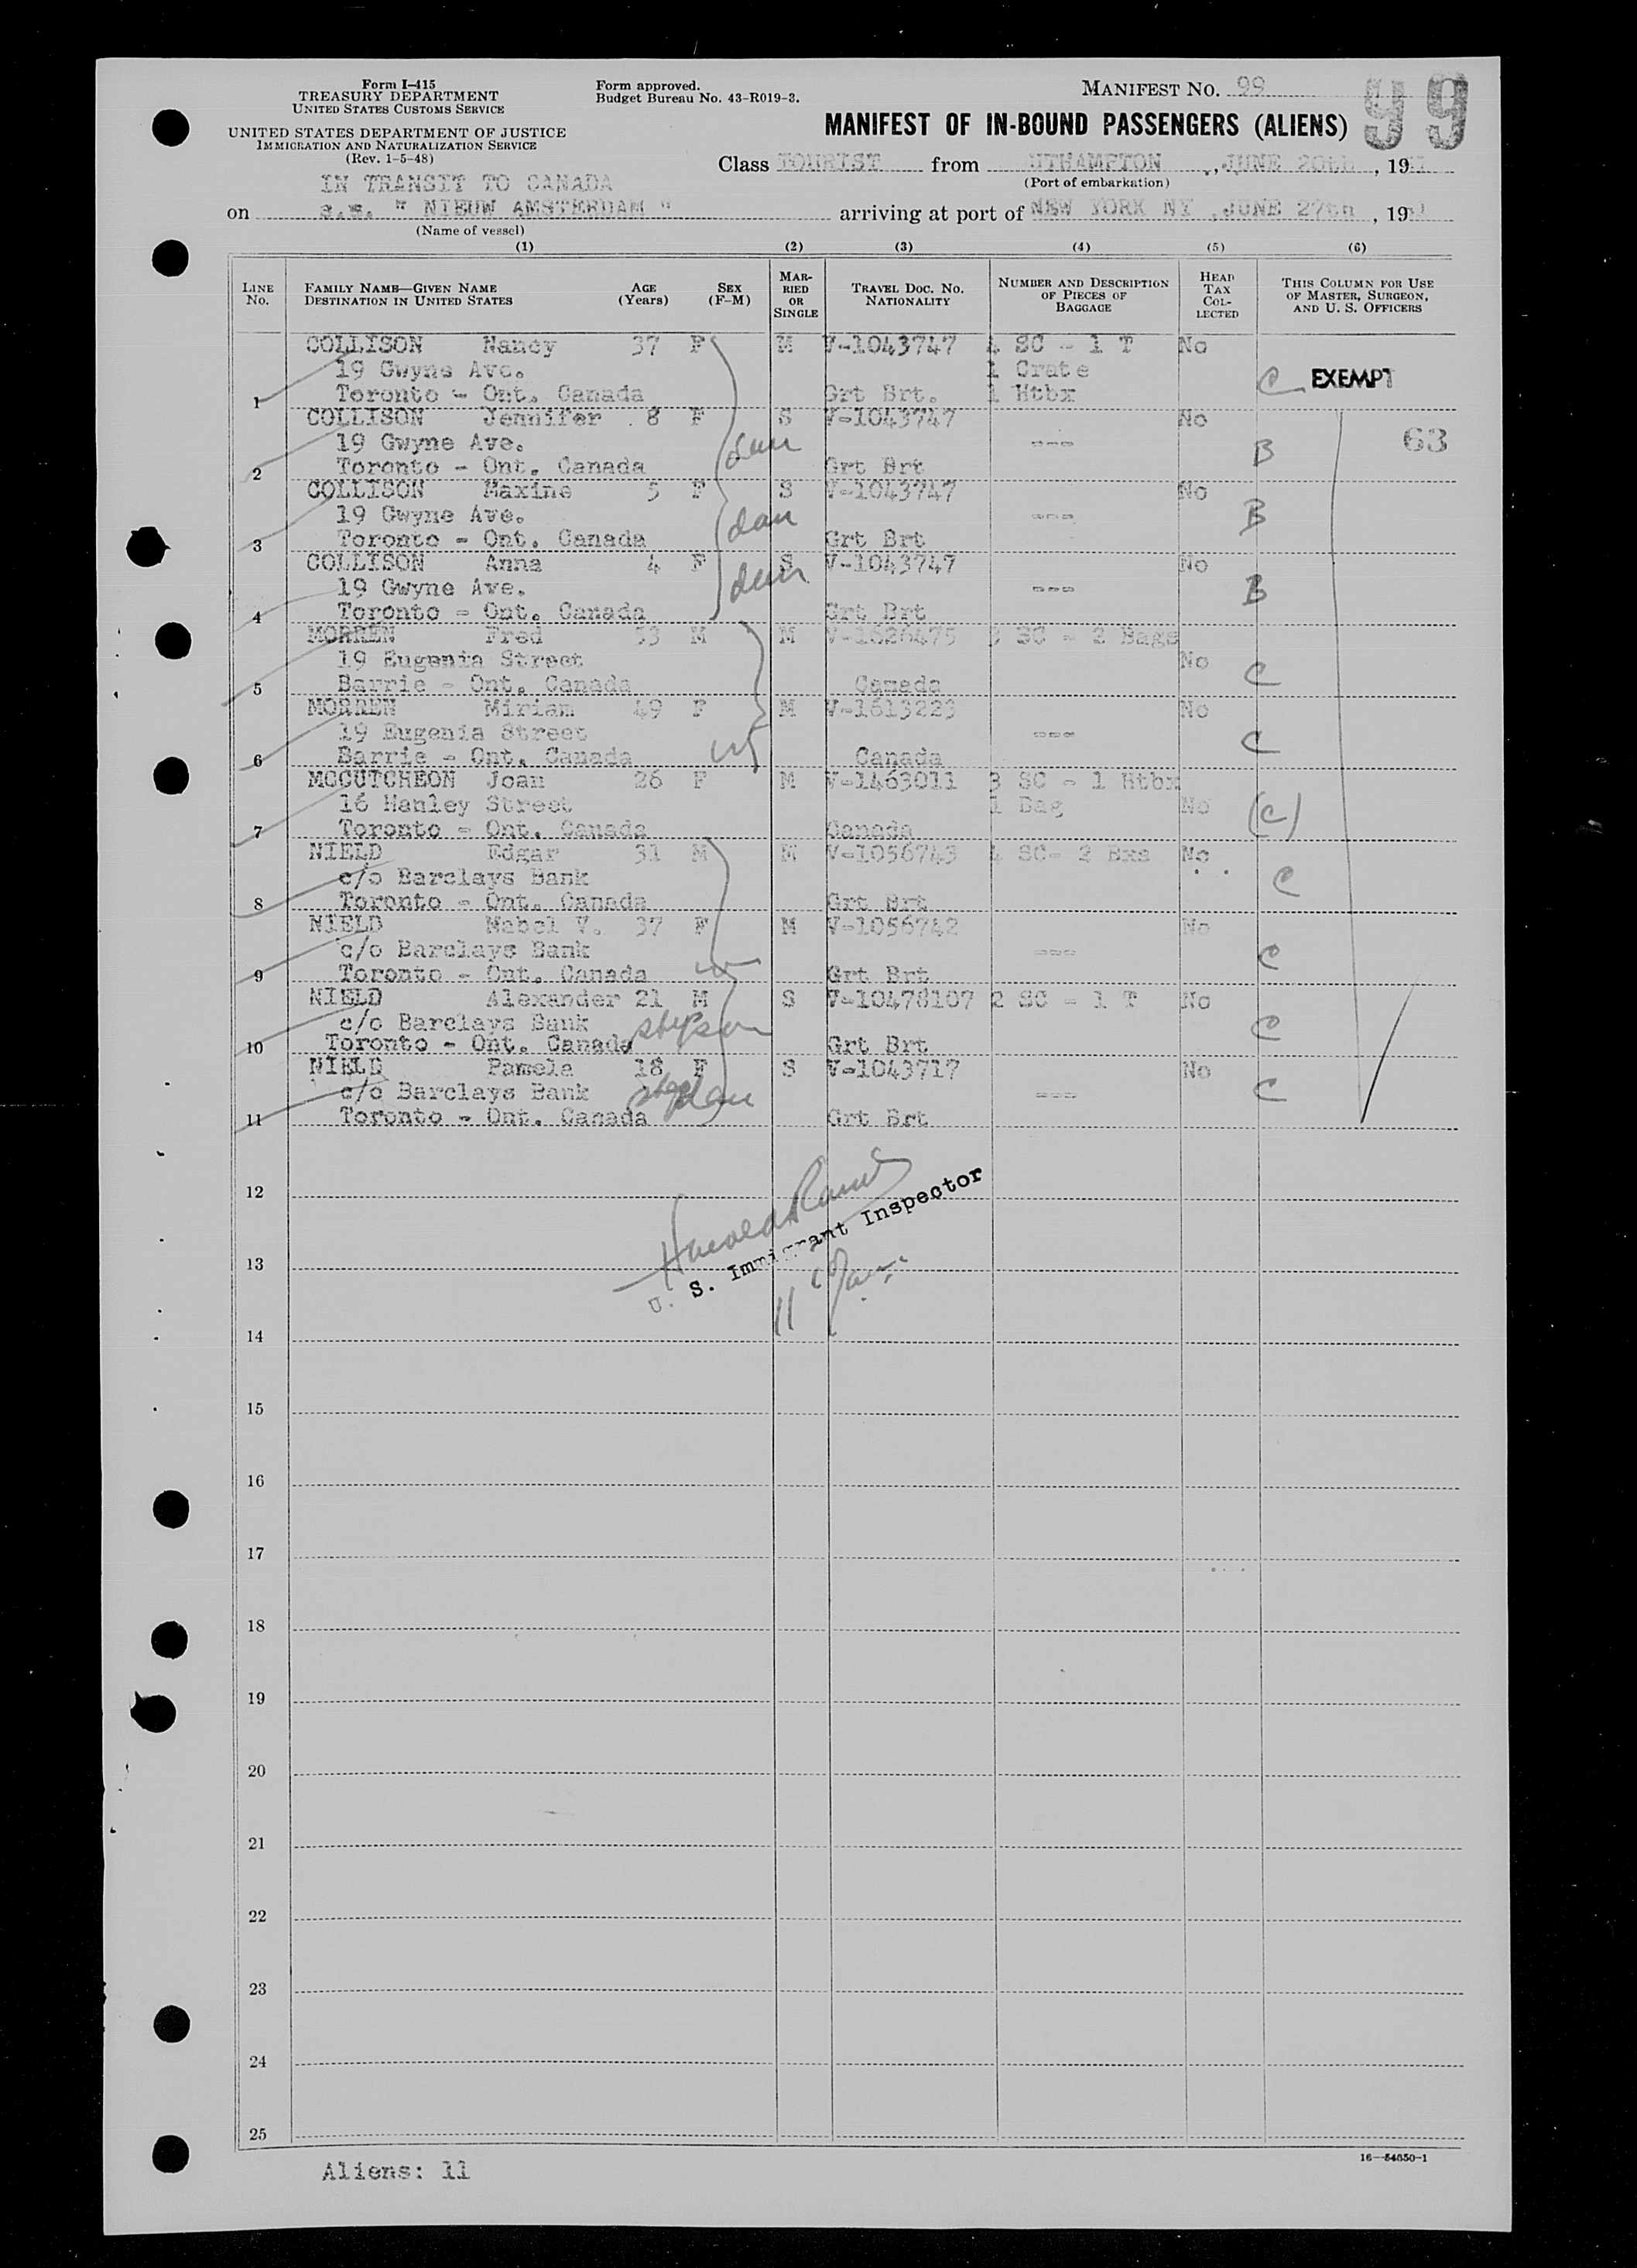 Form I-415
TREASURY DEPARTMENT
UNITED STATES CUSTOMS SERVICE
UNITED STATES DEPARTMENT OF JUSTICE
IMMIGRATION AND NATURALIZATION SERVICE
(Rev. 1-5-48)
Form approved.
Budget Bureau No. 43-R019-3.
MANIFEST NO. 99
99
MANIFEST OF IN-BOUND PASSENGERS (ALIENS)
Class TOURIST from UTHAMPTON, JUNE 20th, 19
(Port of embarkation)
IN TRANSIT TO CANADA
on s.s. " NIEUW AMSTERDAM " arriving at port of NEW YORK NY, JUNE 27th, 19
(Name of vessel)
(1) (2) (3) (4) (5) (6)
LINE No. FAMILY NAME—GIVEN NAME DESTINATION IN UNITED STATES AGE (Years) SEX (F-M) MARRIED OR SINGLE TRAVEL DOC. NO. NATIONALITY NUMBER AND DESCRIPTION OF PIECES OF BAGGAGE HEAD TAX COLLECTED THIS COLUMN FOR USE OF MASTER, SURGEON, AND U. S. OFFICERS
COLLISON Nancy 37 F M V-1043747 4 SC - 1 T No
19 Gwyne Ave. 1 Crate
1 Toronto - Ont. Canada Grt Brt. 1 Htbx C EXEMPT
COLLISON Jennifer 8 F S V-1043747 No
19 Gwyne Ave. dau --- B 63
2 Toronto - Ont. Canada Grt Brt
COLLISON Maxine 5 F S V-1043747 No
19 Gwyne Ave. dau --- B
3 Toronto - Ont. Canada Grt Brt
COLLISON Anna 4 F S V-1043747 No
19 Gwyne Ave. dau --- B
4 Toronto - Ont. Canada Grt Brt
MORREN Fred 53 M M V-1626475 3 SC - 2 Bags
19 Eugenia Street No C
5 Barrie - Ont. Canada Canada
MORREN Miriam 49 F M V-1613223 No
19 Eugenia Street --- C
6 Barrie - Ont. Canada wf Canada
MCCUTCHEON Joan 26 F M V-1463011 3 SC - 1 Htbx
16 Hanley Street 1 Bag No (C)
7 Toronto - Ont. Canada Canada
NIELD Edgar 31 M M V-1056743 4 SC- 2 Bxs No
c/o Barclays Bank C
8 Toronto - Ont. Canada Grt Brt
NIELD Mabel V. 37 F M V-1056742 No
c/o Barclays Bank --- C
9 Toronto - Ont. Canada Grt Brt
NIELD Alexander 21 M S V-10478107 2 SC - 1 T No
c/o Barclays Bank stepson C
10 Toronto - Ont. Canada Grt Brt
NIELD Pamela 18 F S V-1043717 No
c/o Barclays Bank stepdau --- C
11 Toronto - Ont. Canada Grt Brt
12
U. S. Immigrant Inspector
13
14
15
16
17
18
19
20
21
22
23
24
25
16—54850-1
Aliens: 11